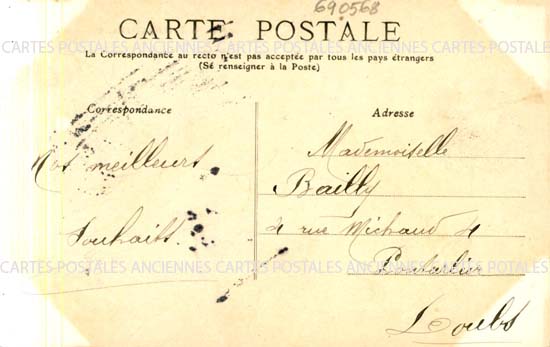 690568
CARTE POSTALE
La Correspondance au recto n'est pas acceptée par tous les pays étrangers
(Se renseigner à la Poste)
CARTES POSTALES ANCIENNES CARTES POSTALES ANCIENNES CARTES POSTALES
Correspondance
Nos meilleurs
Souhaits.
Adresse
Mademoiselle
Bailly
4 rue Michaud 4
Pontarlier
Doubs
CARTES POSTALES ANCIENNES CARTES POSTALES ANCIENNES CARTES POSTALES